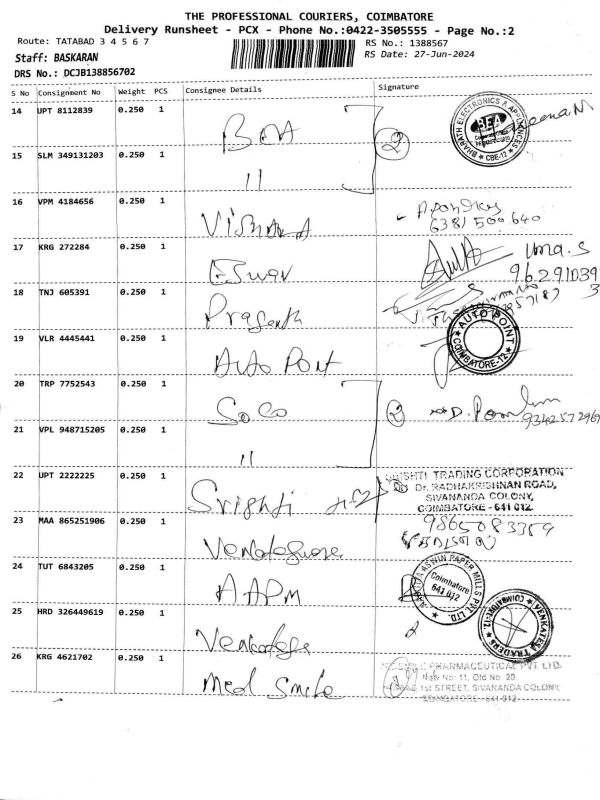 THE PROFESSIONAL COURIERS, COIMBATORE
Delivery Runsheet - PCX - Phone No.:0422-3505555 - Page No.:2
Route: TATABAD 3 4 5 6 7
RS No.: 1388567
Staff: BASKARAN
RS Date: 27-Jun-2024
DRS No.: DCJB138856702
S No Consignment No Weight PCS Consignee Details Signature
14 UPT 8112839 0.250 1 BEA
2
BHARATH ELECTRONICS & APPLIANCES
BEA
CBE-12
15 SLM 349131203 0.250 1 11
16 VPM 4184656 0.250 1
6381500640
17 KRG 272284 0.250 1 Eswar
Uma.S
18 TNJ 605391 0.250 1 Prasanth
19 VLR 4445441 0.250 1 Auto Point
AUTO POINT
COIMBATORE-12
20 TRP 7752543 0.250 1 SoCo
2
9342572969
21 VPL 948715205 0.250 1 11
22 UPT 2222225 0.250 1 Srishti
SRISHTI TRADING CORPORATION
Dr. RADHAKRISHNAN ROAD,
SIVANANDA COLONY,
COIMBATORE - 641 012.
23 MAA 865251906 0.250 1
9865083359
24 TUT 6843205 0.250 1 AAPM
ASWIN PAPER MILLS PVT. LTD.
Coimbatore
641 012
25 HRD 326449619 0.250 1
VENKATESA TRADERS
COIMBATORE-12.
26 KRG 4621702 0.250 1 Med Smile
PHARMACEUTICAL PVT. LTD.
New No: 11, Old No. 20,
1st STREET, SIVANANDA COLONY,
COIMBATORE - 641 012